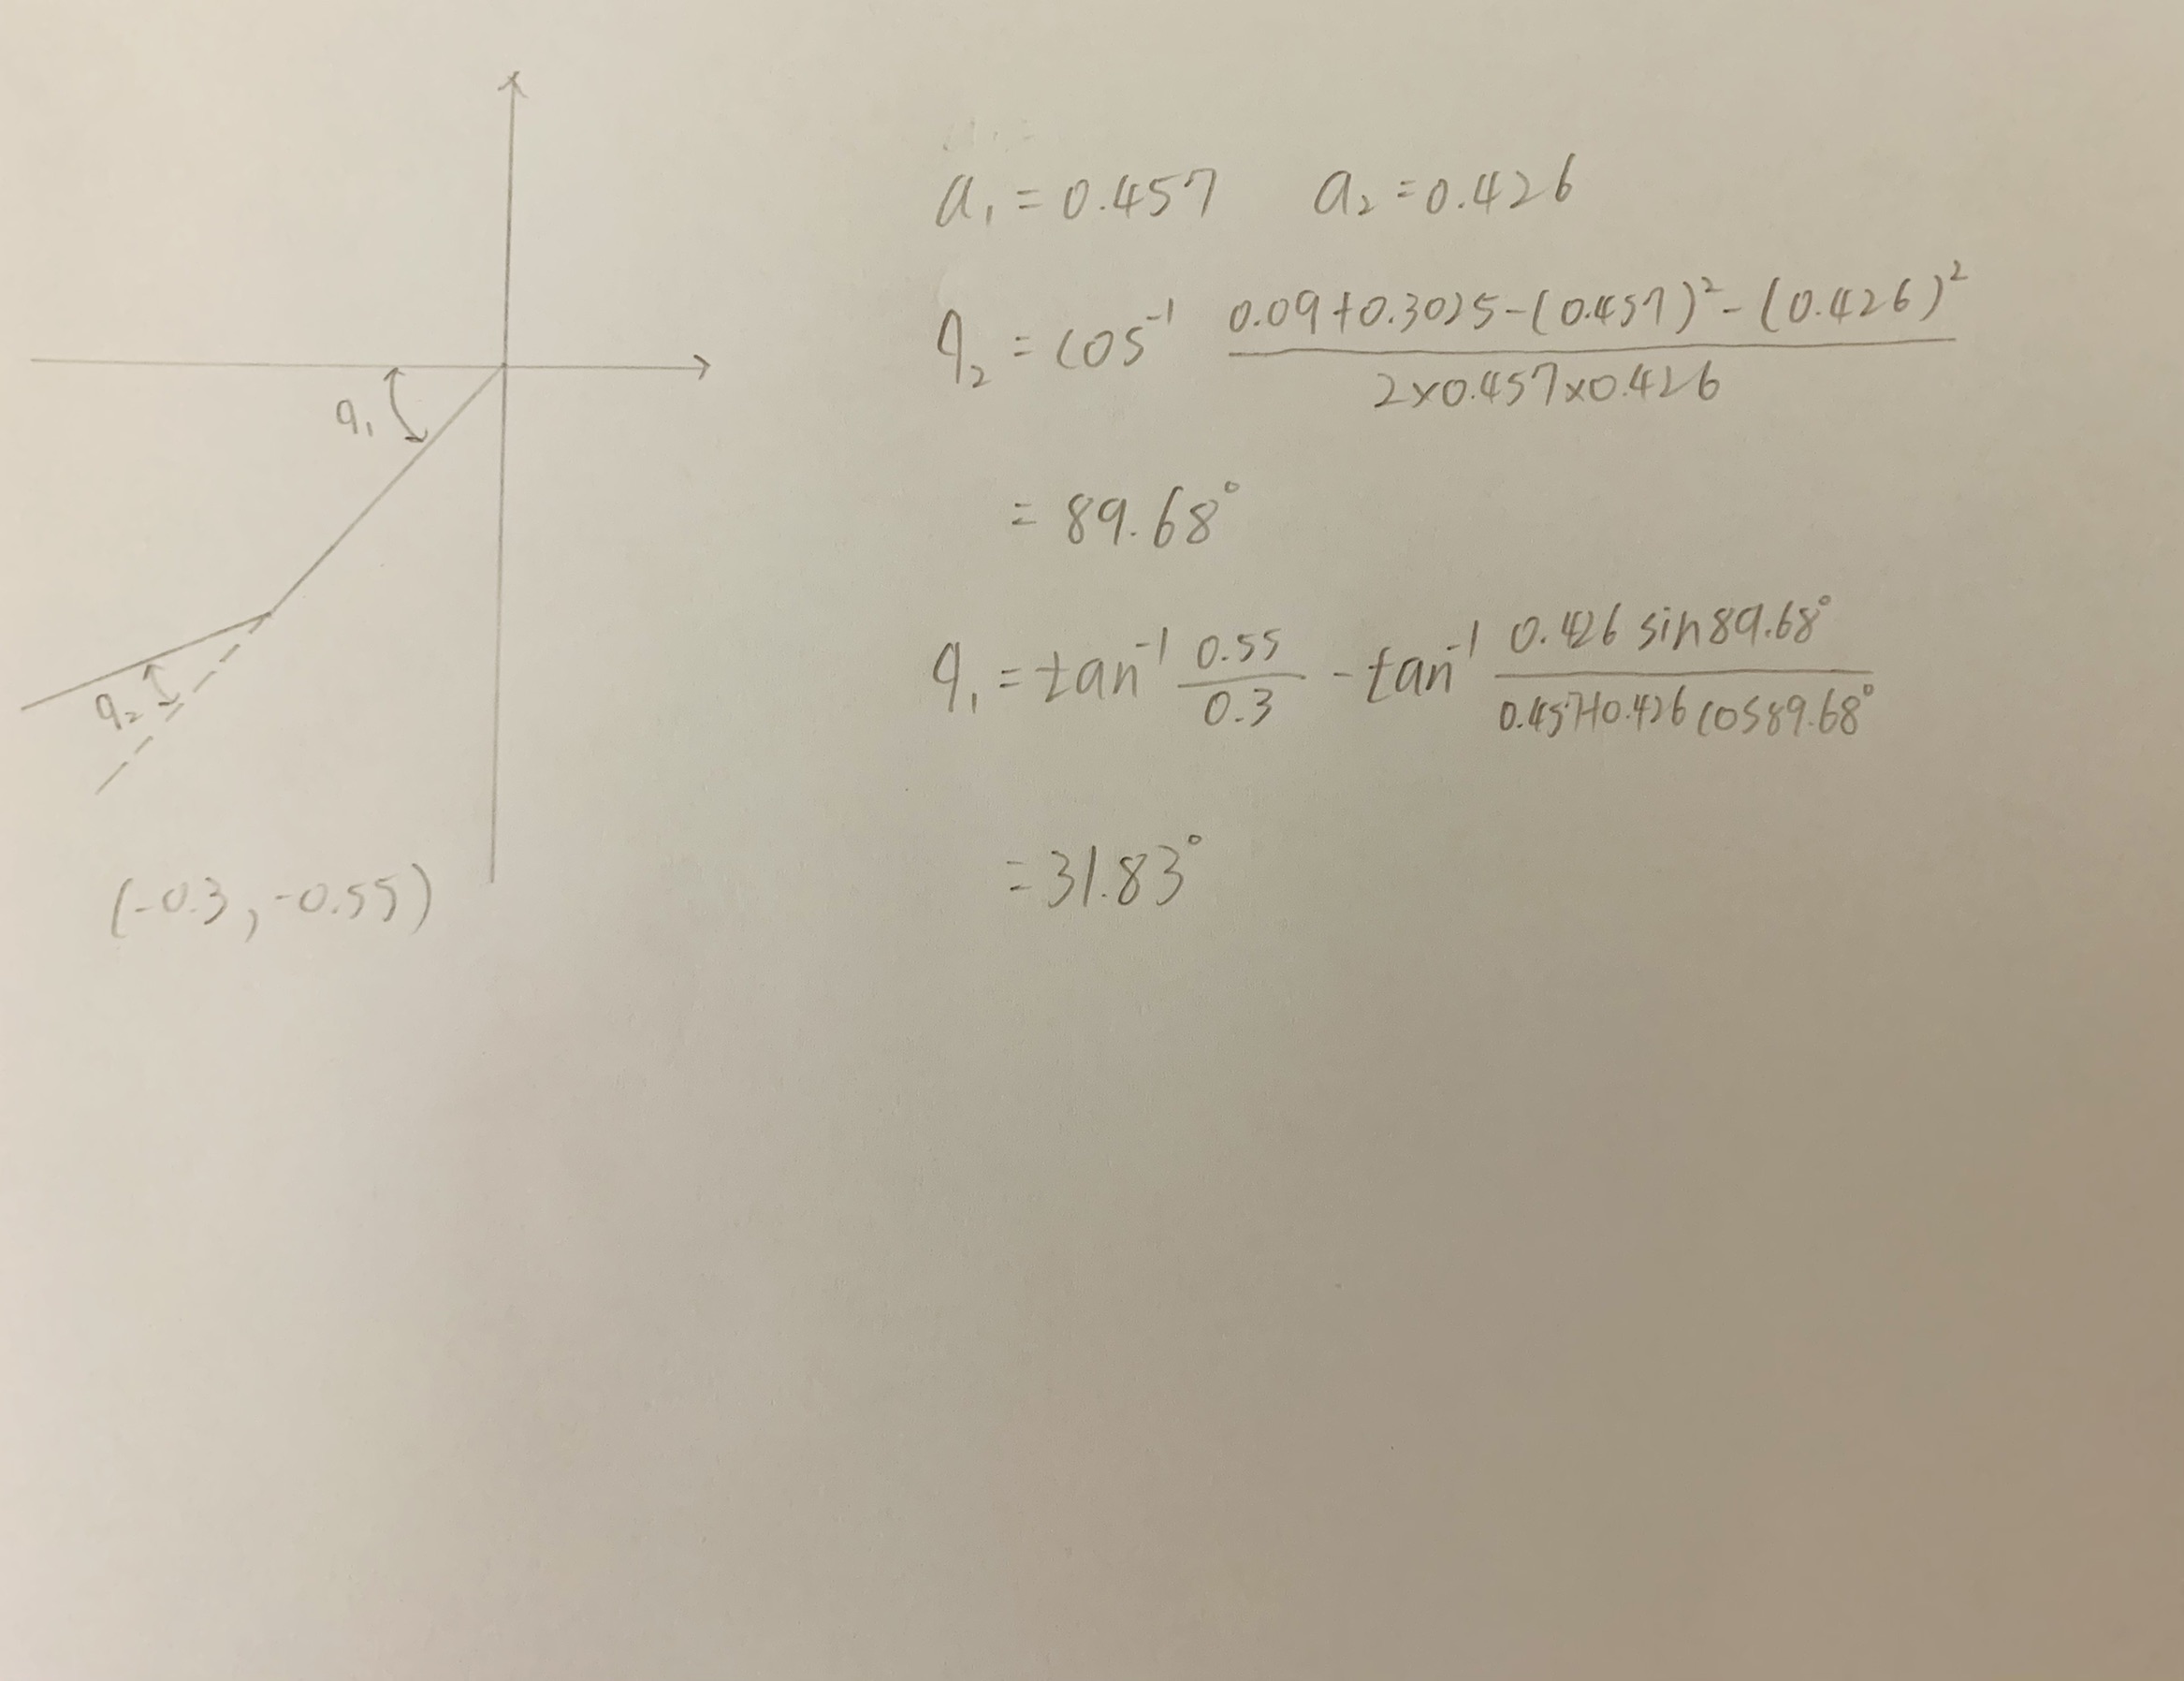 a₁ = 0.457 a₂ = 0.426
q₂ = cos⁻¹ (0.09+0.3025-(0.457)²-(0.426)²) / (2×0.457×0.426)
= 89.68°
q₁ = tan⁻¹ 0.55/0.3 - tan⁻¹ (0.426 sin89.68°) / (0.457+0.426 cos89.68°)
= 31.83°
q₁
q₂
(-0.3, -0.55)